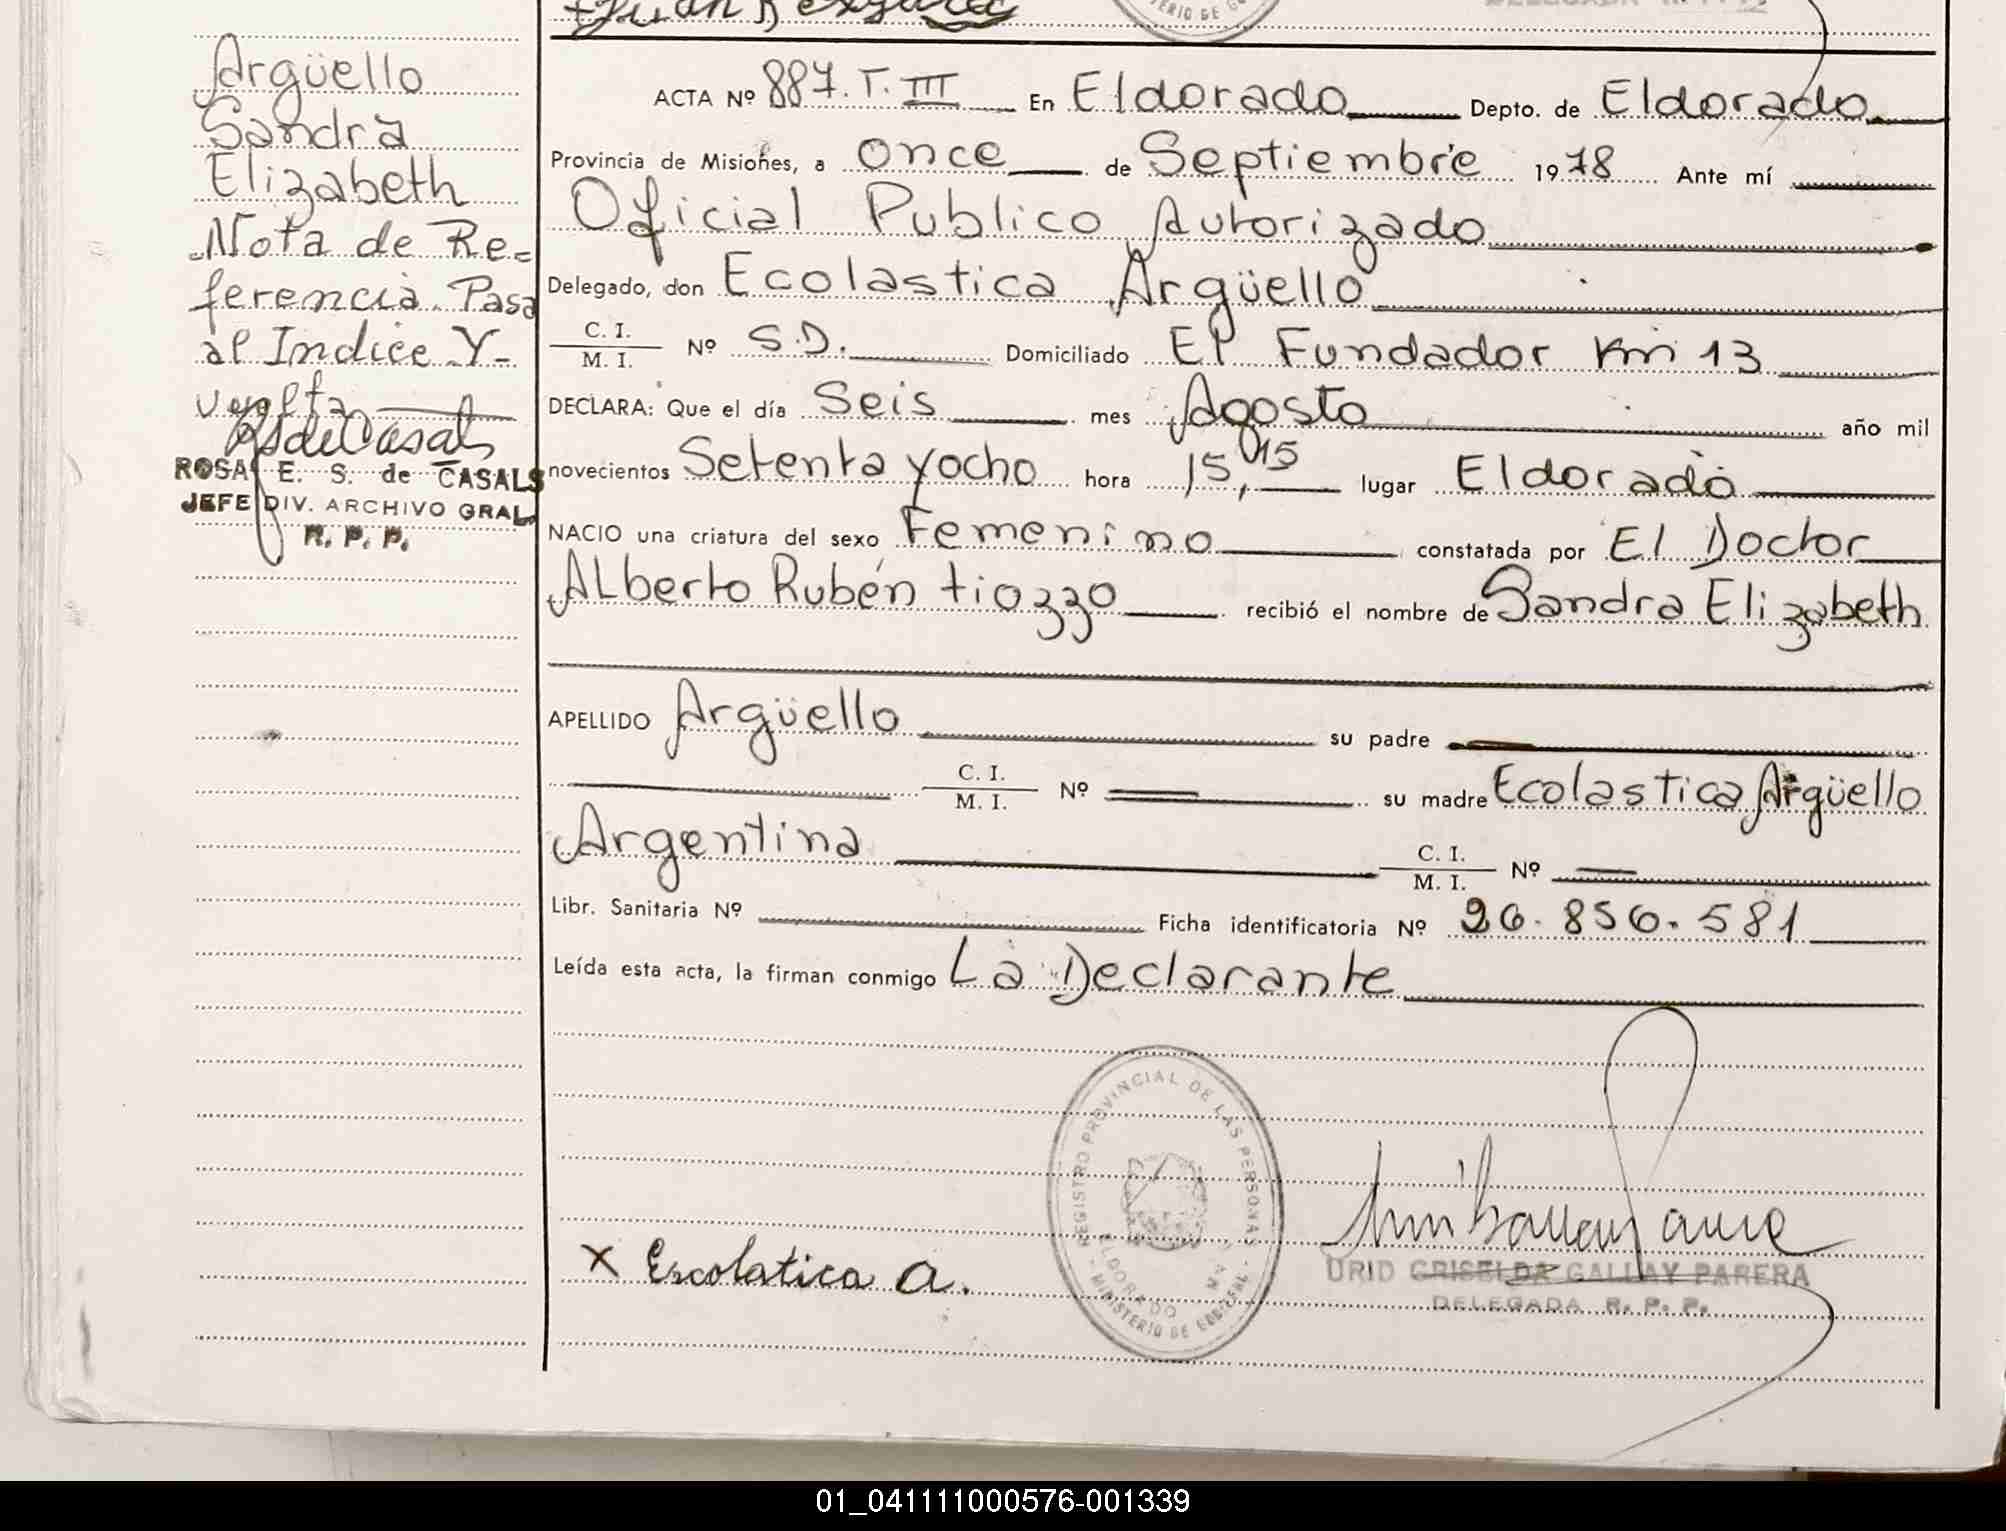 Argüello
Sandra
Elizabeth
Nota de Re=
ferencia. Pasa
al Indice Y-
vuelta
ROSA E. S. de CASALS
JEFE DIV. ARCHIVO GRAL.
R. P. P.
ACTA Nº 887. T. III En Eldorado Depto. de Eldorado
Provincia de Misiones, a once de Septiembre 1978 Ante mí
Oficial Publico Autorizado
Delegado, don Ecolastica Argüello
C. I.
M. I. Nº S.D. Domiciliado El Fundador Km 13
DECLARA: Que el día Seis mes Agosto año mil
novecientos Setenta yocho hora 15,15 lugar Eldorado
NACIO una criatura del sexo Femenino constatada por El Doctor
ALberto Rubén tiozzo recibió el nombre de Sandra Elizabeth
APELLIDO Argüello su padre
C. I.
M. I. Nº su madre Ecolastica Argüello
Argentina C. I.
M. I. Nº
Libr. Sanitaria Nº Ficha identificatoria Nº 26.856.581
Leída esta acta, la firman conmigo La Declarante
REGISTRO PROVINCIAL DE LAS PERSONAS
ELDORADO
MINISTERIO DE GOBIERNO
x Escolatica a.
URID GRISELDA GALLAY PARERA
DELEGADA R. P. P.
01_041111000576-001339